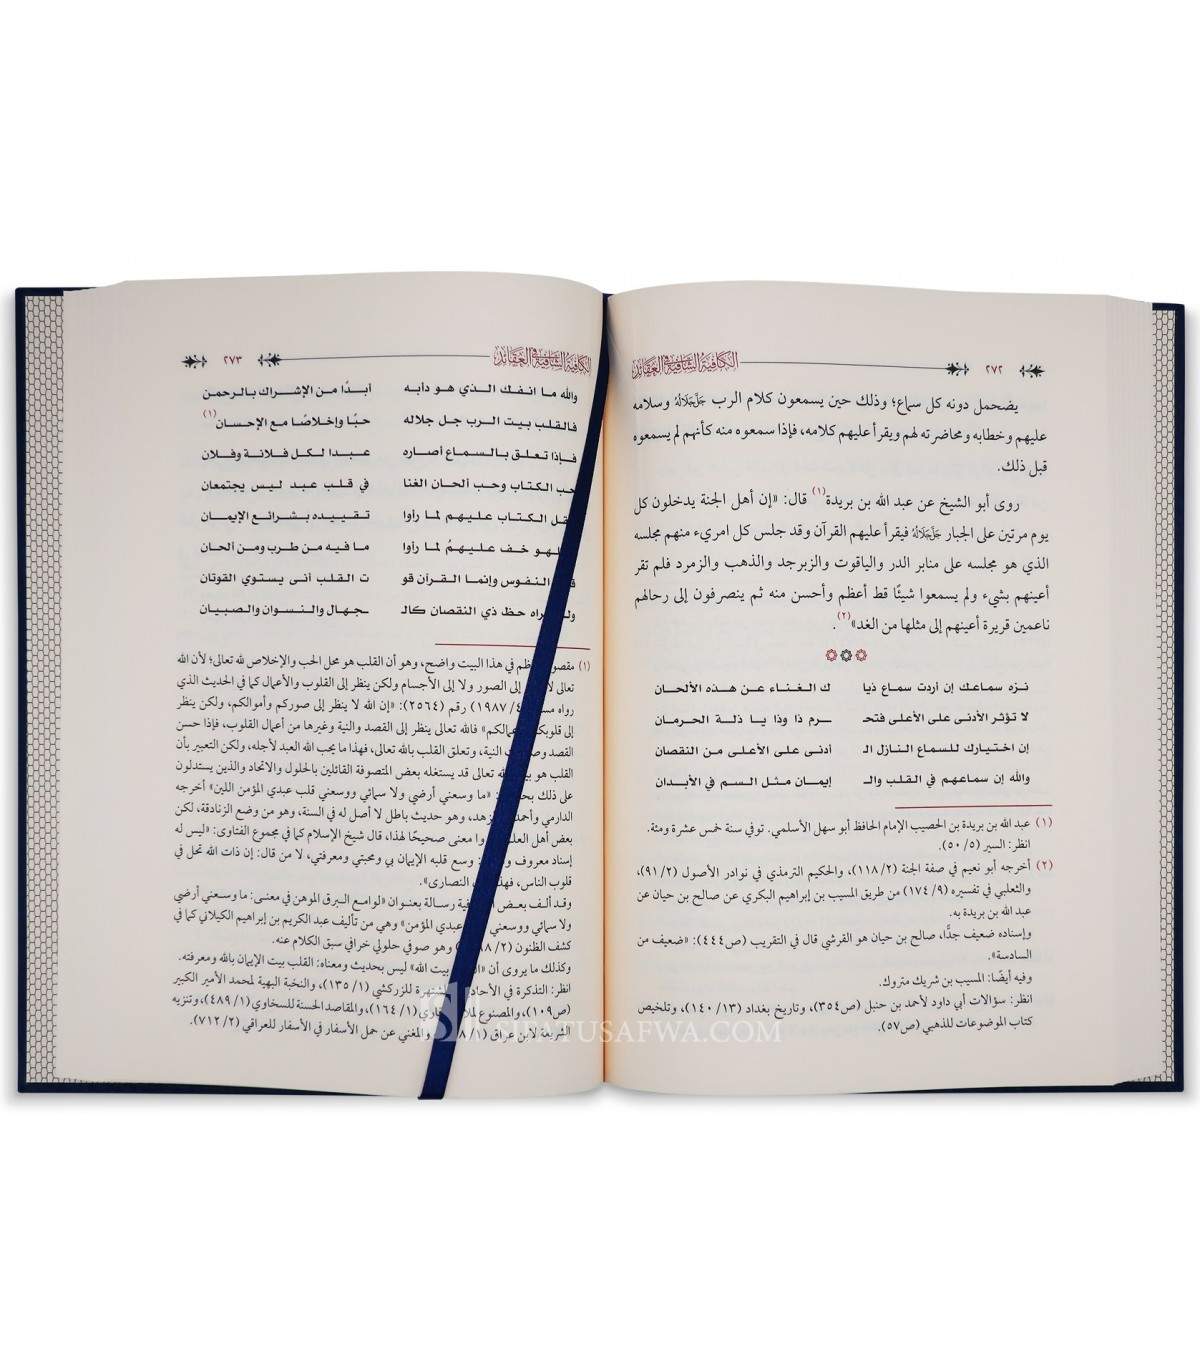 ٢٧٢
الكافية الشافية في العقائد
يضمحل دونه كل سماع؛ وذلك حين يسمعون كلام الرب جَلَّجَلَالُهُ وسلامه
عليهم وخطابه ومحاضرته لهم ويقرأ عليهم كلامه، فإذا سمعوه منه كأنهم لم يسمعوه
قبل ذلك.
روى أبو الشيخ عن عبد الله بن بريدة(١) قال: «إن أهل الجنة يدخلون كل
يوم مرتين على الجبار جَلَّجَلَالُهُ فيقرأ عليهم القرآن وقد جلس كل امريء منهم مجلسه
الذي هو مجلسه على منابر الدر والياقوت والزبرجد والذهب والزمرد فلم تقر
أعينهم بشيء ولم يسمعوا شيئًا قط أعظم وأحسن منه ثم ينصرفون إلى رحالهم
ناعمين قريرة أعينهم إلى مثلها من الغد»(٢).
نزه سماعك إن أردت سماع ذيا ك الغناء عن هذه الألحان
لا تؤثر الأدنى على الأعلى فتحـ ـرم ذا وذا يا ذلة الحرمان
إن اختيارك للسماع النازل الـ أدنى على الأعلى من النقصان
والله إن سماعهم في القلب والـ إيمان مثل السم في الأبدان
(١) عبد الله بن بريدة بن الحصيب الإمام الحافظ أبو سهل الأسلمي. توفي سنة خمس عشرة ومئة.
انظر: السير (٥/ ٥٠).
(٢) أخرجه أبو نعيم في صفة الجنة (٢/ ١١٨)، والحكيم الترمذي في نوادر الأصول (٢/ ٩١)،
والثعلبي في تفسيره (٩/ ١٧٤) من طريق المسيب بن إبراهيم البكري عن صالح بن حيان عن
عبد الله بن بريدة به.
وإسناده ضعيف جدًّا، صالح بن حيان هو القرشي قال في التقريب (ص٤٤٤): «ضعيف من
السادسة».
وفيه أيضًا: المسيب بن شريك متروك.
انظر: سؤالات أبي داود لأحمد بن حنبل (ص٣٥٤)، وتاريخ بغداد (١٣/ ١٤٠)، وتلخيص
كتاب الموضوعات للذهبي (ص٥٧).
الكافية الشافية في العقائد
٢٧٣
والله ما انفك الذي هو دأبه أبدًا من الإشراك بالرحمن
فالقلب بيت الرب جل جلاله حبًا وإخلاصًا مع الإحسان(١)
فإذا تعلق بالسماع أصاره عبدا لكل فلانة وفلان
حب الكتاب وحب ألحان الغنا في قلب عبد ليس يجتمعان
الكتاب عليهم لما رأوا تقييده بشرائع الإيمان
خف عليهمُ لما رأوا ما فيه من طرب ومن ألحان
النفوس وإنما القرآن قو ت القلب أنى يستوي القوتان
حظ ذي النقصان كالـ ـجهال والنسوان والصبيان
(١) في هذا البيت واضح، وهو أن القلب هو محل الحب والإخلاص لله تعالى؛ لأن الله
تعالى إلى الصور ولا إلى الأجسام ولكن ينظر إلى القلوب والأعمال كما في الحديث الذي
رواه (٤/ ١٩٨٧) رقم (٢٥٦٤): «إن الله لا ينظر إلى صوركم وأموالكم، ولكن ينظر
إلى فالله تعالى ينظر إلى القصد والنية وغيرها من أعمال القلوب، فإذا حسن
القصد النية، وتعلق القلب بالله تعالى، فهذا ما يجب الله العبد لأجله، ولكن التعبير بأن
القلب هو تعالى قد يستغله بعض المتصوفة القائلين بالحلول والاتحاد والذين يستدلون
على ذلك «ما وسعني أرضي ولا سمائي ووسعني قلب عبدي المؤمن اللين» أخرجه
الدارمي وأحمد وهو حديث باطل لا أصل له في السنة، وهو من وضع الزنادقة، لكن
بعض أهل معنى صحيحًا لهذا، قال شيخ الإسلام كما في مجموع الفتاوى: «ليس له
إسناد معروف وسع قلبه الإيمان بي ومحبتي ومعرفتي، لا من قال: إن ذات الله تحل في
قلوب الناس، النصارى».
وقد ألف بعض رسالة بعنوان «لوامع البرق الموهن في معنى: ما وسعني أرضي
ولا سمائي ووسعني عبدي المؤمن» وهي من تأليف عبد الكريم بن إبراهيم الكيلاني كما في
كشف الظنون وهو صوفي حلولي خرافي سبق الكلام عنه.
وكذلك ما يروى أن بيت الله» ليس بحديث ومعناه: القلب بيت الإيمان بالله ومعرفته.
انظر: التذكرة في للزركشي (١/ ١٣٥)، والنخبة البهية لمحمد الأمير الكبير
(ص١٠٩)، والمصنوع (١/ ١٦٤)، والمقاصد الحسنة للسخاوي (١/ ٤٨٩)، وتنزيه
الشريعة لابن عراق والمغني عن حمل الأسفار في الأسفار للعراقي (٢/ ٧١٢).
SIFATUSAFWA.COM